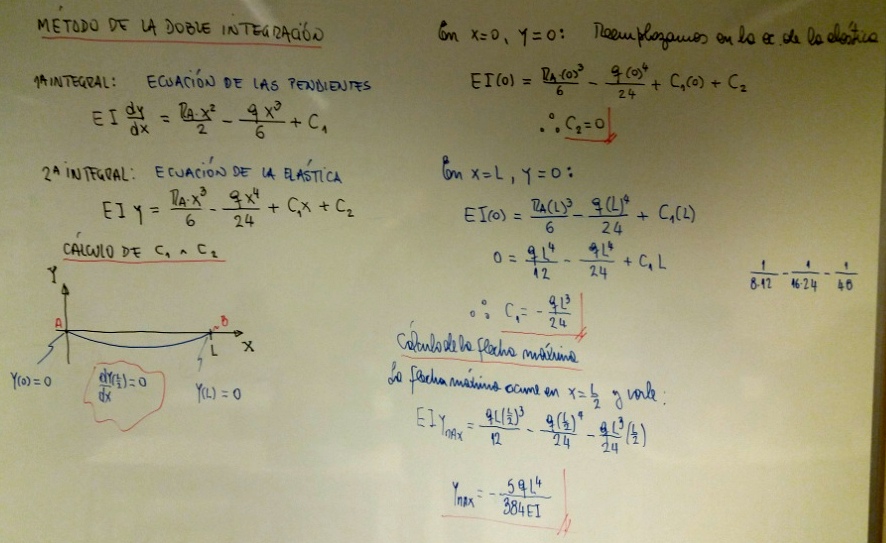 MÉTODO DE LA DOBLE INTEGRACIÓN
1ª INTEGRAL: ECUACIÓN DE LAS PENDIENTES
EI dy/dx = RA·x²/2 - qx³/6 + C₁
2ª INTEGRAL: ECUACIÓN DE LA ELÁSTICA
EI y = RA·x³/6 - qx⁴/24 + C₁x + C₂
CÁLCULO DE C₁ ^ C₂
Y
A
B
L
X
Y(0) = 0
dy(L/2)/dx = 0
Y(L) = 0
En x=0, y=0: Reemplazamos en la ec. de la elástica
EI(0) = RA·(0)³/6 - q(0)⁴/24 + C₁(0) + C₂
∴ C₂ = 0
En x=L, y=0:
EI(0) = RA(L)³/6 - q(L)⁴/24 + C₁(L)
0 = qL⁴/12 - qL⁴/24 + C₁L
∴ C₁ = - qL³/24
1/8·12 - 1/16·24 - 1/48
Cálculo de la flecha máxima
La flecha máxima ocurre en x = L/2 y vale:
EI yMAX = qL(L/2)³/12 - q(L/2)⁴/24 - qL³/24 (L/2)
YMAX = - 5qL⁴/384EI